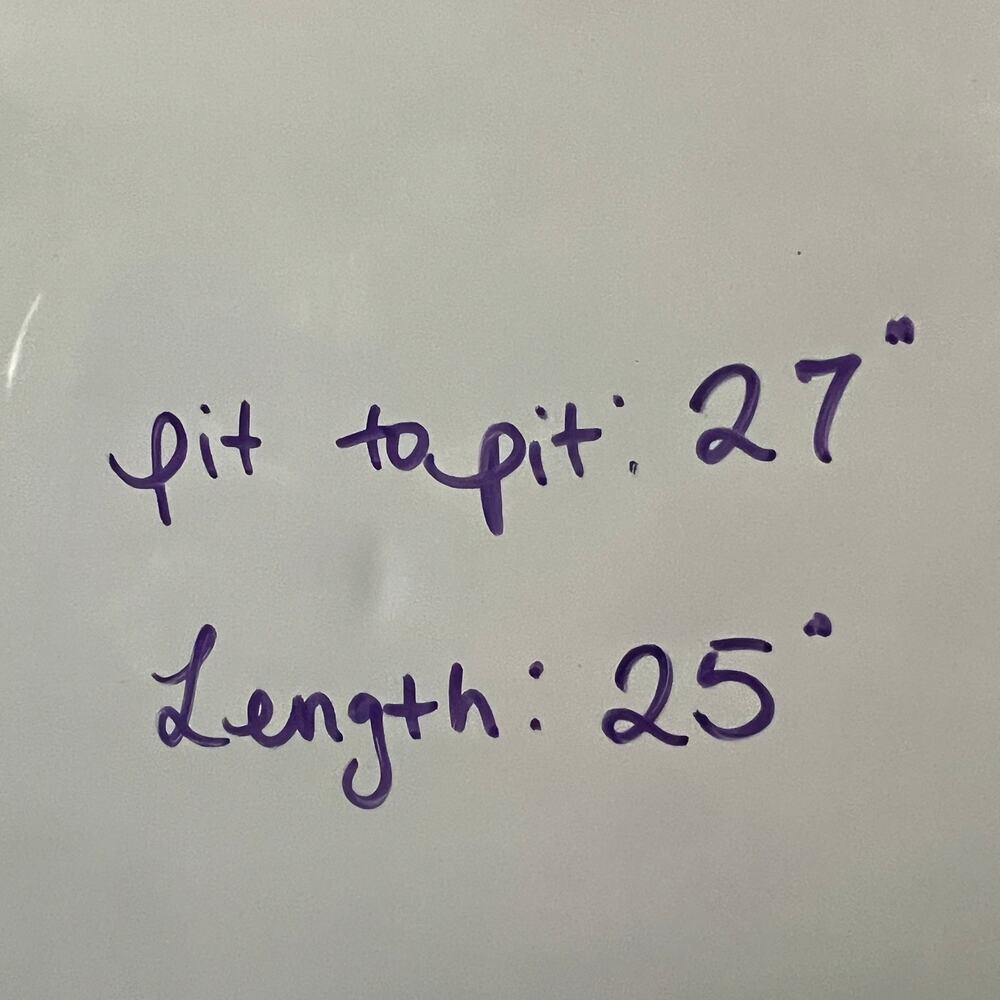 pit to pit: 27"
Length: 25"